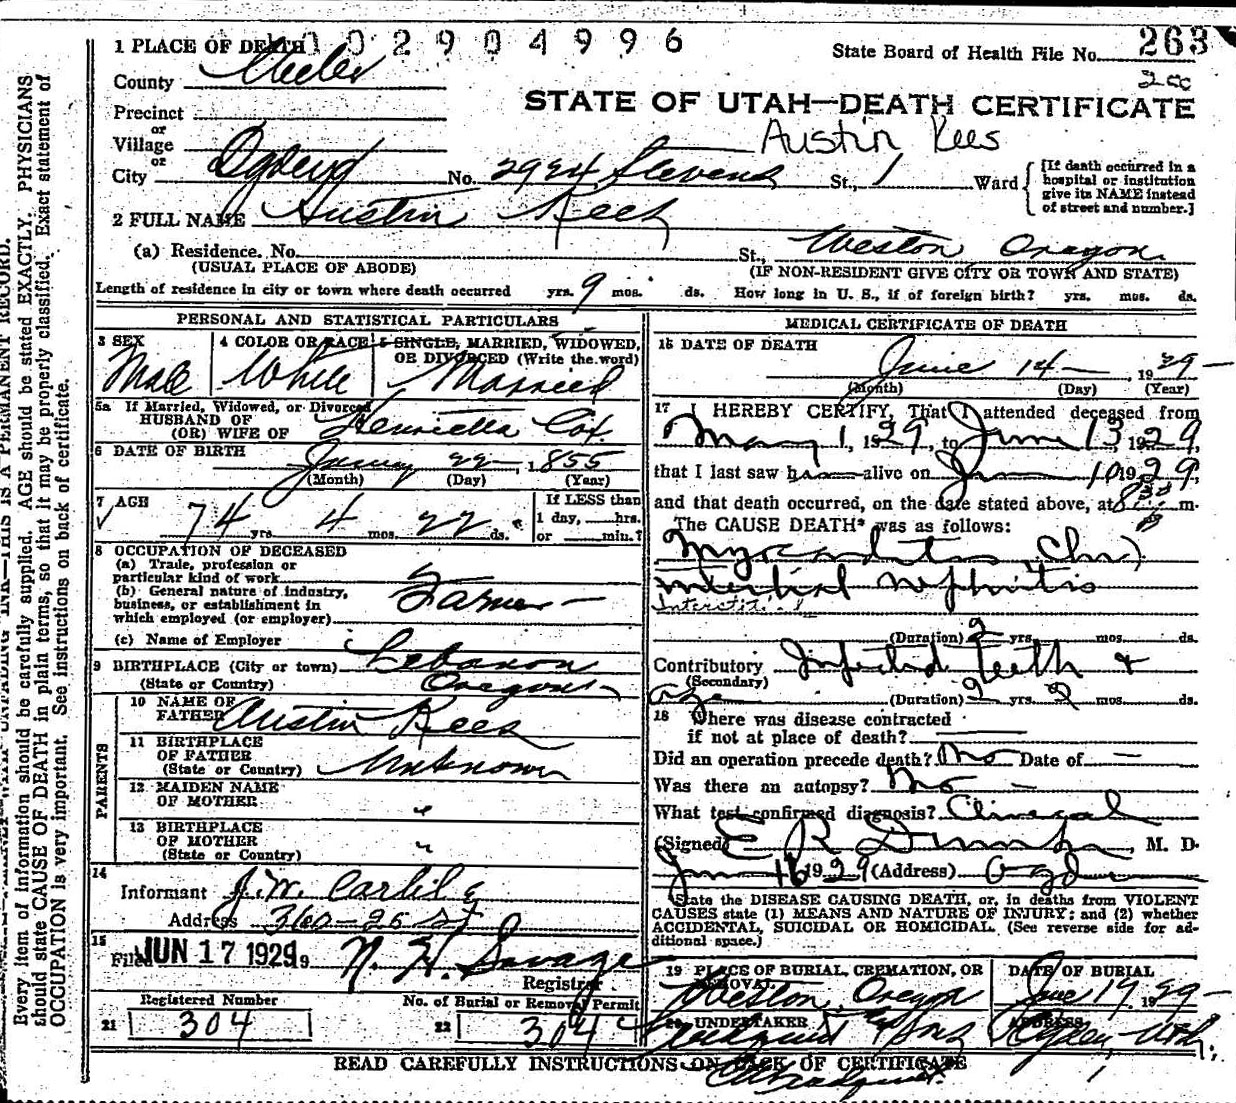 1 PLACE OF DEATH 1 0 0 2 9 0 4 9 9 6
State Board of Health File No. 263
County Weber
Precinct
or
Village
or
City Ogden No. 2924 Stevens St., 1 Ward
STATE OF UTAH—DEATH CERTIFICATE
Austin Rees
[If death occurred in a
hospital or institution
give its NAME instead
of street and number.]
2 FULL NAME Austin Rees
(a) Residence. No. St., Weston, Oregon
(USUAL PLACE OF ABODE) (IF NON-RESIDENT GIVE CITY OR TOWN AND STATE)
Length of residence in city or town where death occurred yrs. 9 mos. ds. How long in U. S., if of foreign birth? yrs. mos. ds.
PERSONAL AND STATISTICAL PARTICULARS
3 SEX
Male
4 COLOR OR RACE
White
5 SINGLE, MARRIED, WIDOWED,
OR DIVORCED (Write the word)
Married
5a If Married, Widowed, or Divorced
HUSBAND OF
(OR) WIFE OF Henrietta Cox
6 DATE OF BIRTH January 22, 1855
(Month) (Day) (Year)
7 AGE
74 yrs. 4 mos. 22 ds.
If LESS than
1 day, hrs.
or min.?
8 OCCUPATION OF DECEASED
(a) Trade, profession or
particular kind of work
(b) General nature of industry,
business, or establishment in
which employed (or employer)
Farmer
(c) Name of Employer
9 BIRTHPLACE (City or town) Lebanon
(State or Country) Oregon
PARENTS
10 NAME OF
FATHER Austin Rees
11 BIRTHPLACE
OF FATHER
(State or Country) Unknown
12 MAIDEN NAME
OF MOTHER "
13 BIRTHPLACE
OF MOTHER
(State or Country) "
14
Informant J. W. Carlile
Address 360-26 St
15
Filed JUN 17 1929 19 N. H. Savage
Registrar
Registered Number
21 304
No. of Burial or Removal Permit
22 304
MEDICAL CERTIFICATE OF DEATH
16 DATE OF DEATH
June 14, 1929
(Month) (Day) (Year)
17 I HEREBY CERTIFY, That I attended deceased from
May 1, 1929, to June 13, 1929,
that I last saw h alive on June 10 1929,
and that death occurred, on the date stated above, at 8 m.
The CAUSE DEATH* was as follows:
Myocarditis (Chr)
intersticial nephritis
Interstitial
(Duration) 2 yrs. mos. ds.
Contributory Infected teeth &
(Secondary)
age (Duration) 2 yrs. 2 mos. ds.
18 Where was disease contracted
if not at place of death?
Did an operation precede death? No Date of
Was there an autopsy? No
What test confirmed diagnosis? Clinical
(Signed) E R Dumke, M. D.
June 16 1929 (Address) Ogden
State the DISEASE CAUSING DEATH, or, in deaths from VIOLENT
CAUSES state (1) MEANS AND NATURE OF INJURY; and (2) whether
ACCIDENTAL, SUICIDAL OR HOMICIDAL. (See reverse side for ad-
ditional space.)
19 PLACE OF BURIAL, CREMATION, OR
REMOVAL
Weston Oregon
DATE OF BURIAL
June 19, 1929
20 UNDERTAKER
Lindquist & Sons
ADDRESS
Ogden, Utah
READ CAREFULLY INSTRUCTIONS ON BACK OF CERTIFICATE
Every item of information should be carefully supplied. AGE should be stated EXACTLY. PHYSICIANS
should state CAUSE OF DEATH in plain terms, so that it may be properly classified. Exact statement of
OCCUPATION is very important. See instructions on back of certificate.